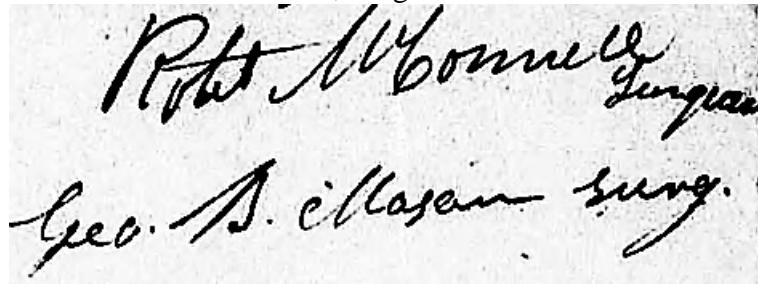 Robt McConnell
Surgeon
Geo. B. Mason Surg.